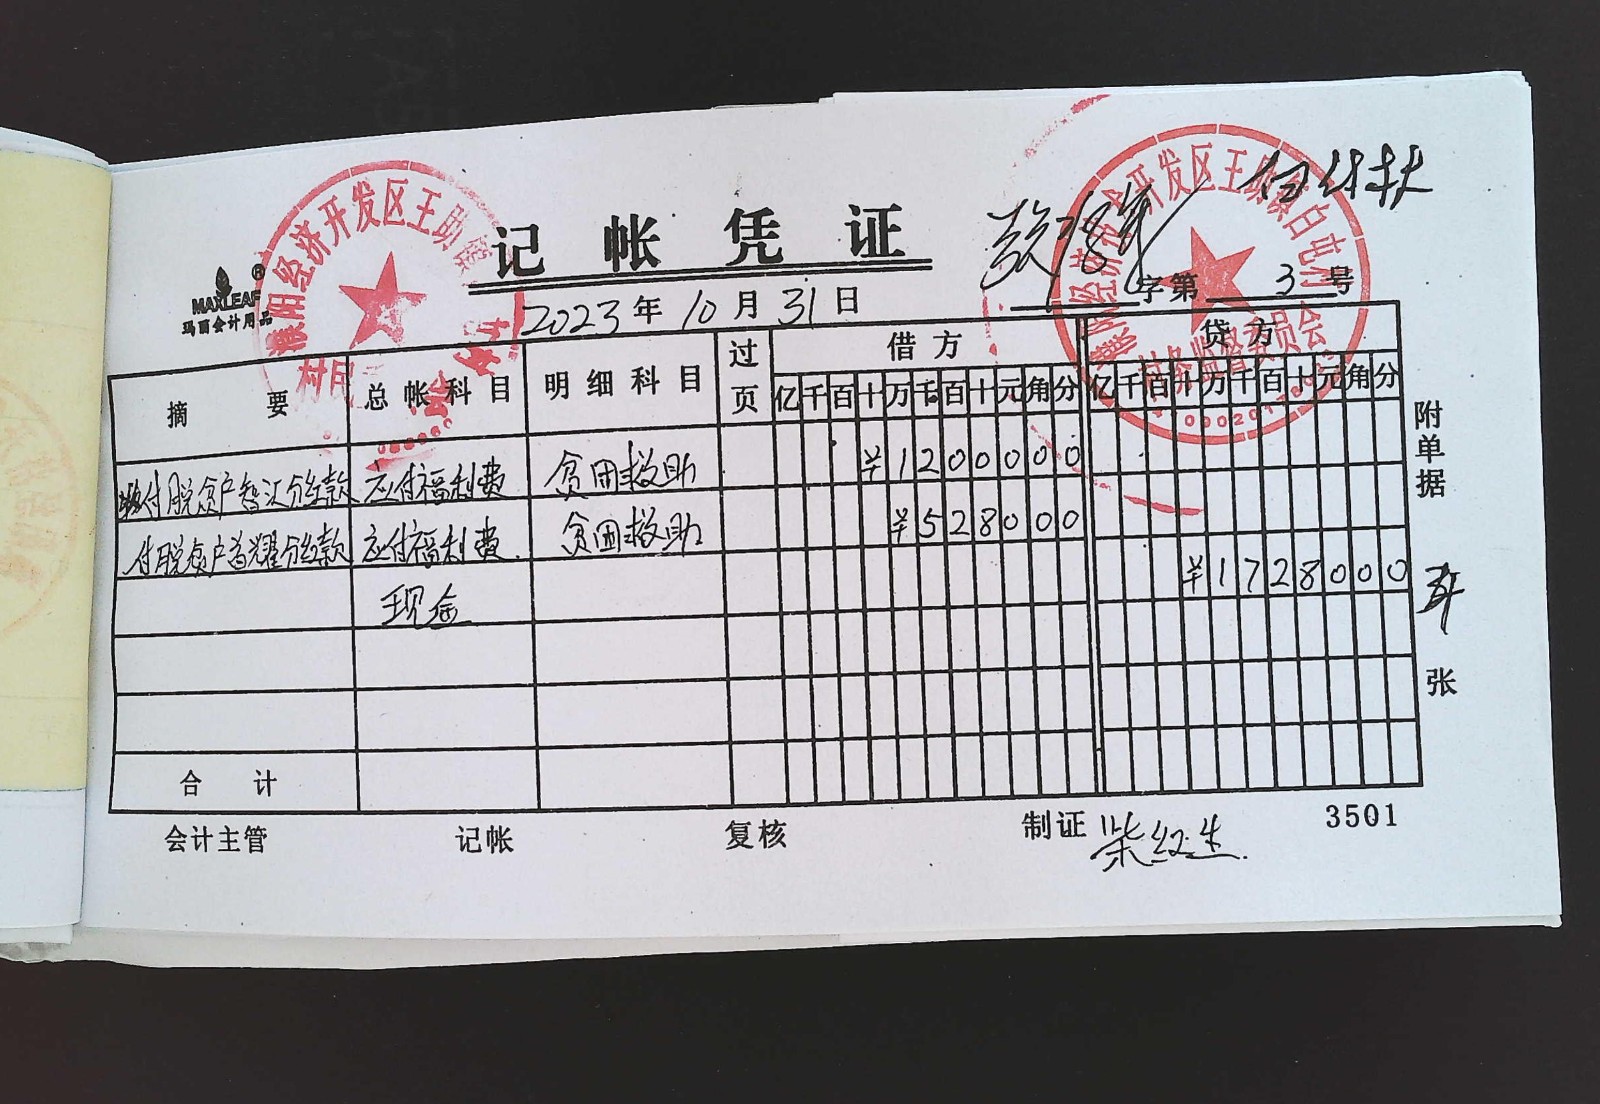 MAXLEAF®
玛丽会计用品
记帐凭证
2023年10月31日
字第 3 号
摘要 总帐科目 明细科目 过页 借方 贷方
亿千百十万千百十元角分 亿千百十万千百十元角分
付脱贫户智汇分红款 应付福利费 贫困救助 ¥1200000
付脱贫户首耀分红款 应付福利费 贫困救助 ¥528000
现金 ¥1728000
合计
附单据 张
会计主管 记帐 复核 制证 柴红生 3501
濮阳经济开发区王助镇
村民
濮阳经济技术开发区王助镇白屯村
村务监督委员会